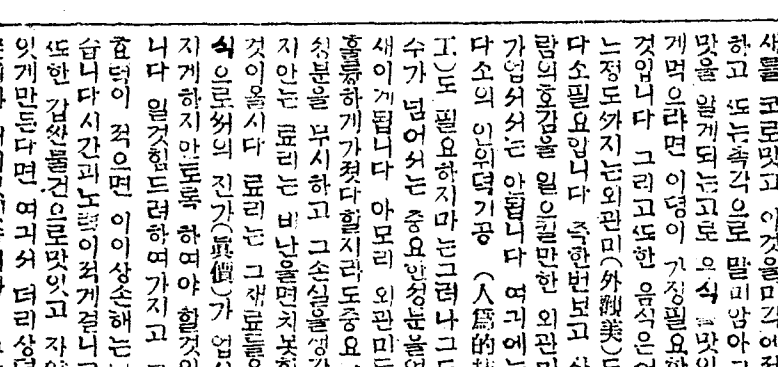 새를 코로맛고 이것을미각에
하고 또는촉각으로 말미암아
맛을 알게되는고로 음식 맛잇
게먹으랴면 이 가장필요한
것입니다 그리고또한 음식은어
느정도까지는외관미(外觀美)도
다소필요입니다 족한번보고 사
람의호감을 일으킬만한 외관미
가업서서는 안됩니다 여긔에는
다소의 인위덕기공 (人爲的技
工)도 필요하지마는그러나그도
수가 넘어서는 중요한성분을업
새이게됩니다 아모리 외관미는
훌륭하게가젓다할지라도중요
성분을 무시하고 그손실을생각
지안는 료리는 비난을면치못할
것이올시다 료리는 그재료들의
식으로써의 진가(眞價)가 업서
지게하지안토록 하여야 할것입
니다 일것힘드려하여가지고
효력이 적으면 이이상손해는
습니다시간과노력이적게걸니고
또한 갑싼물건으로맛잇고 자양
잇게만든다면 여긔서 더리상